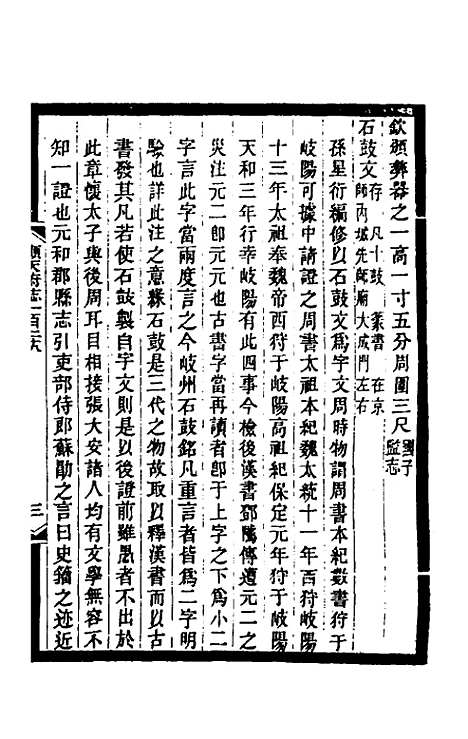 欽頒彝器之一高一寸五分周圍三尺國子監志
石鼓文存 凡十鼓 篆書 在京師內城先師廟大成門左右
孫星衍編修以石鼓文爲宇文周時物謂周書本紀數書狩于
岐陽可據中諸證之周書太祖本紀魏大統十一年西狩岐陽
十三年太祖奉魏帝西狩于岐陽高祖紀保定元年狩于岐陽
天和三年行幸岐陽有此四事今檢後漢書鄧隲傳遭元二之
災注元二卽元元也古書字當再讀者卽于上字之下爲小二
字言此字當兩度言之今岐州石鼓銘凡重言者皆爲二字明
驗也詳此注之意緣石鼓是三代之物故取以釋漢書而以古
書發其凡若使石鼓製自宇文則是以後證前雖愚者不出於
此章懷太子與後周耳目相接張大安諸人均有文學無容不
知一證也元和郡縣志引吏部侍郎蘇勖之言曰史籀之迹近
順天府志一百二十八
三